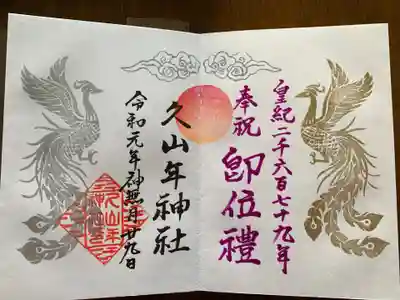 皇紀二千六百七十九年
奉祝
即位禮
久山年神社
令和元年神無月廿九日